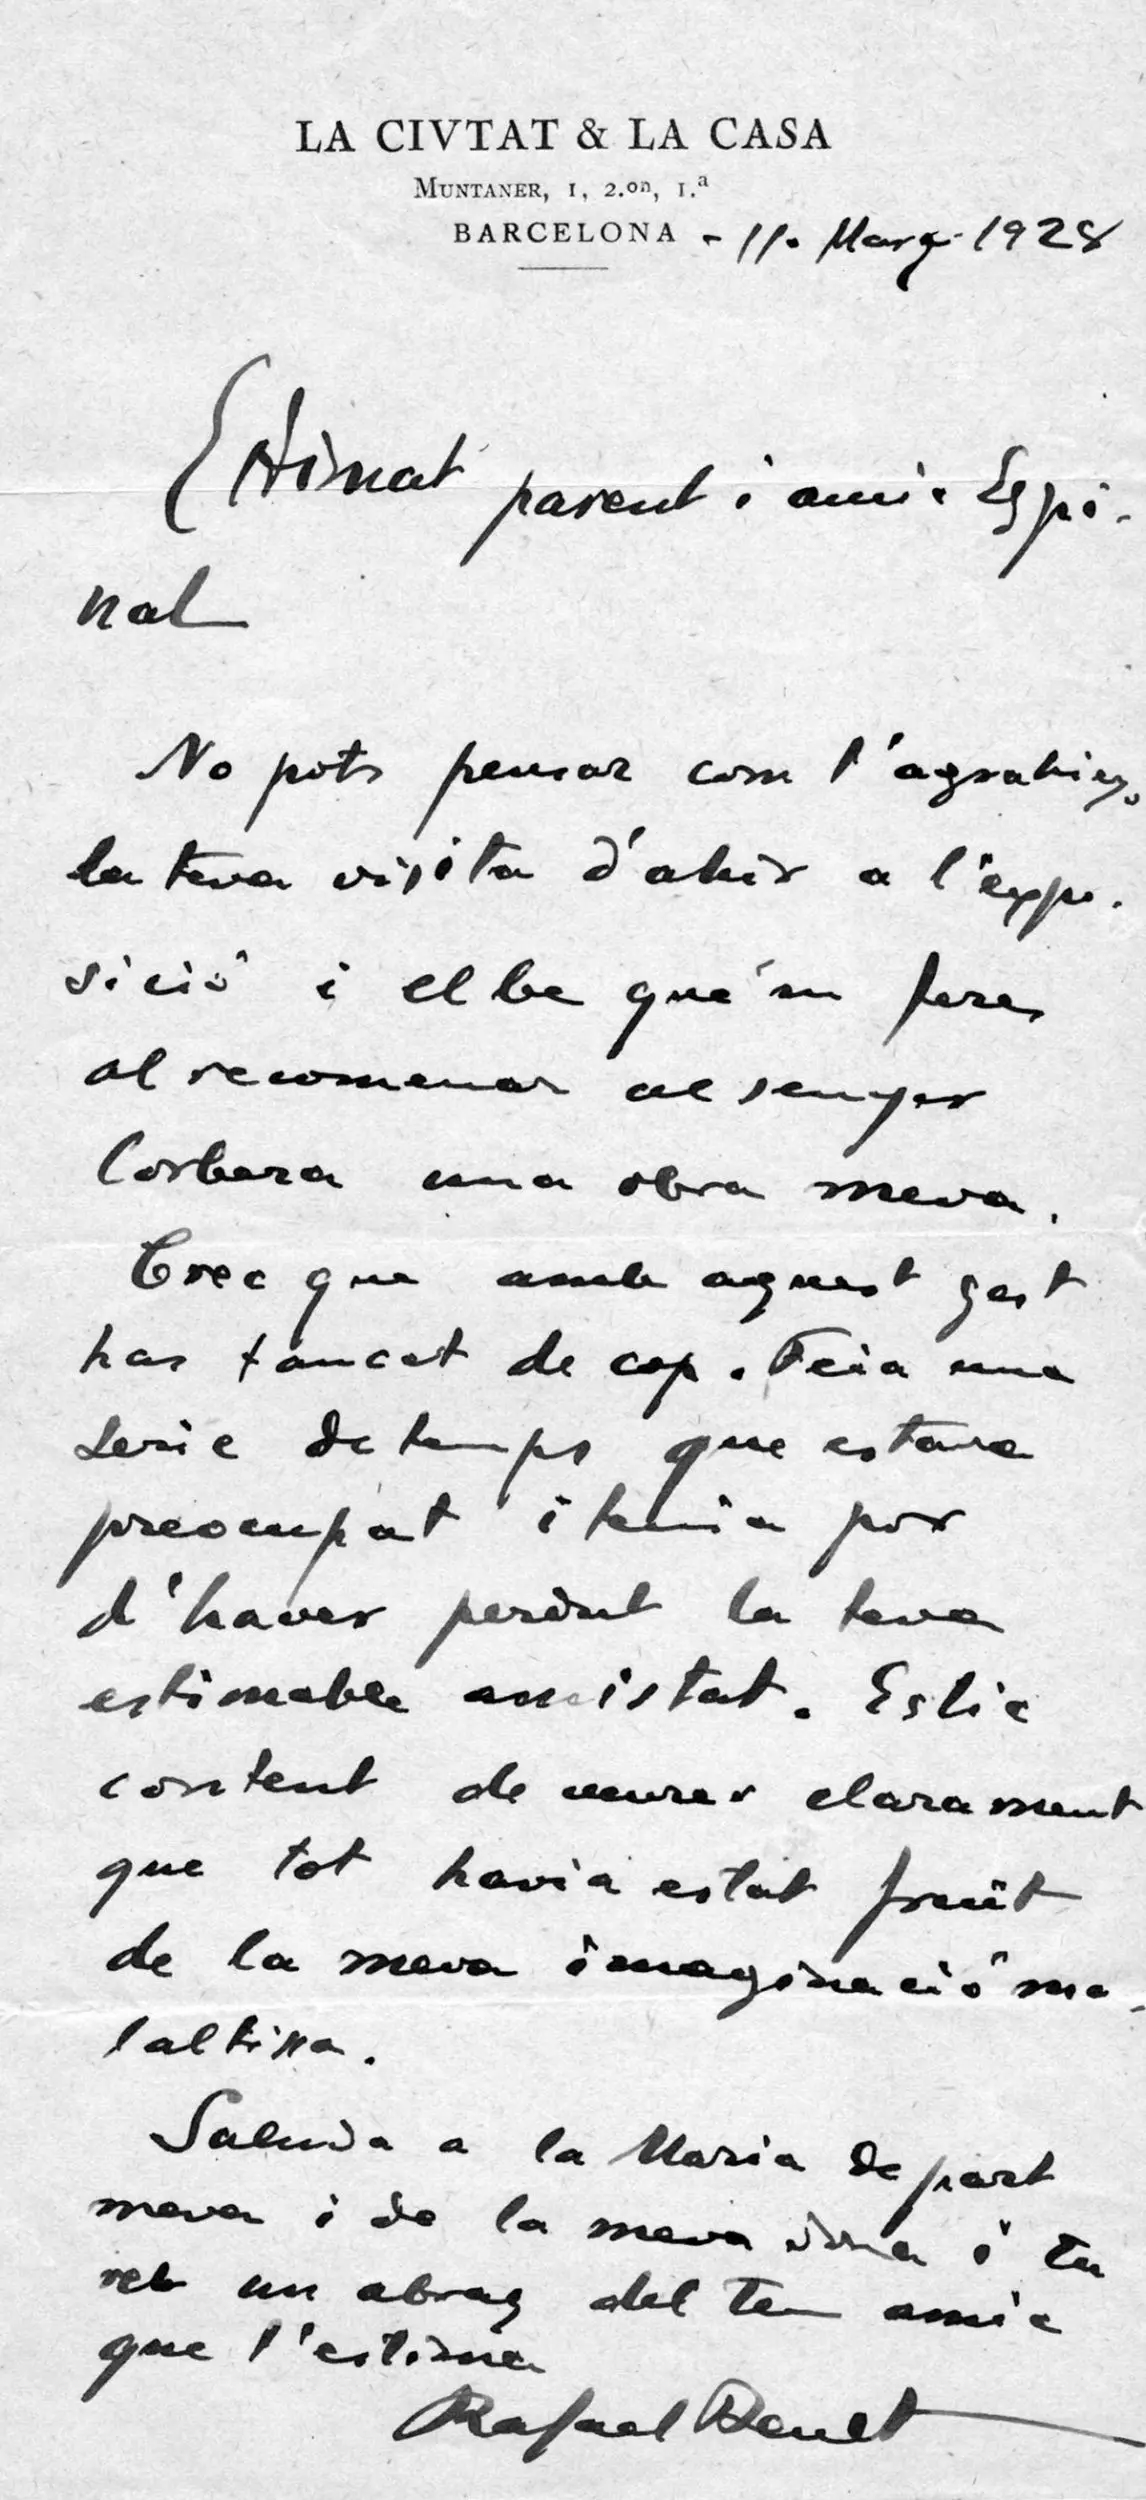 LA CIVTAT & LA CASA
MUNTANER, 1, 2.on, 1.a
BARCELONA - 11. Març 1928
Estimat parent i amic Espi-
nal
No pots pensar com t'agrahiex.
la teva visita d'ahir a l'expo-
sició i el be que'm feres
al recomenar al senyor
Corbera una obra meva.
Crec que amb aquest gest
has tancat de cop. Feia una
serie de temps que estava
preocupat i tenia por
d'haver perdut la teva
estimable amistat. Estic
content de veurer clarament
que tot havia estat fruit
de la meva imaginació ma-
laltissa.
Saluda a la Maria de part
meva i de la meva dona i tu
reb un abraç del teu amic
que t'estima
Rafael Benet